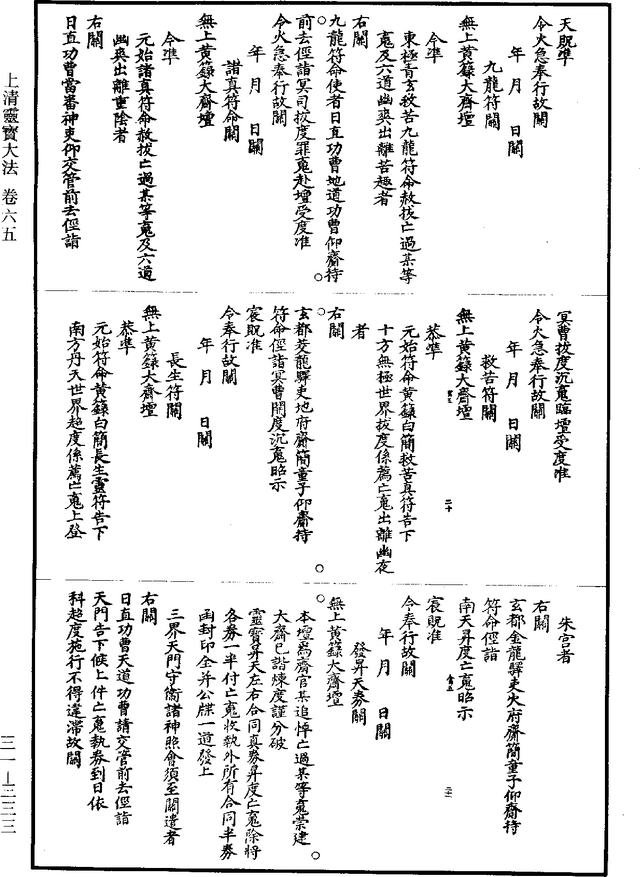 上清靈寶大法 卷六五
三一—三三三
天貺准
令火急奉行故關
年 月 日關
九龍符關
無上黃籙大齋壇
今準
東極青玄救苦九龍符命赦拔亡過某等
䰟及六道幽爽出離苦趣者
右關
九龍符命使者日直功曹地道功曹仰齋持
前去徑詣冥司拔度罪䰟赴壇受度准
令火急奉行故關
年 月 日關
諸真符命關
無上黃籙大齋壇
今準
元始諸真符命赦拔亡過某等䰟及六道
幽爽出離重陰者
右關
日直功曹當番神吏仰交管前去徑詣
冥曹拔度沉䰟臨壇受度准
令火急奉行故關
年 月 日關
救苦符關
無上黃籙大齋壇
恭準
元始符命黃籙白簡救苦真符告下
十方無極世界拔度係薦亡䰟出離幽夜
者
右關
玄都茭龍驛吏地府齋簡童子仰齋持
符命徑詣冥曹開度沉䰟昭示
宸貺准
令奉行故關
年 月 日關
長生符關
無上黃籙大齋壇
恭準
元始符命黃籙白簡長生靈符告下
南方丹天世界超度係薦亡䰟上登
朱宮者
右關
玄都金龍驛吏火府齋簡童子仰齋持
符命徑詣
南天昇度亡䰟昭示
宸貺准
令奉行故關
年 月 日關
發昇天券關
無上黃籙大齋壇
本壇爲齋官某追悼亡過某等䰟崇建
大齋已諧煉度謹分破
靈寶昇天左右合同真券昇度亡䰟除將
各券一半付亡䰟收執外所有合同半券
函封印全并公牒一道發上
三界天門守衛諸神照會須至關遣者
右關
日直功曹天道功曹請交管前去徑詣
天門告下候上件亡䰟執券到日依
科超度施行不得違滯故關